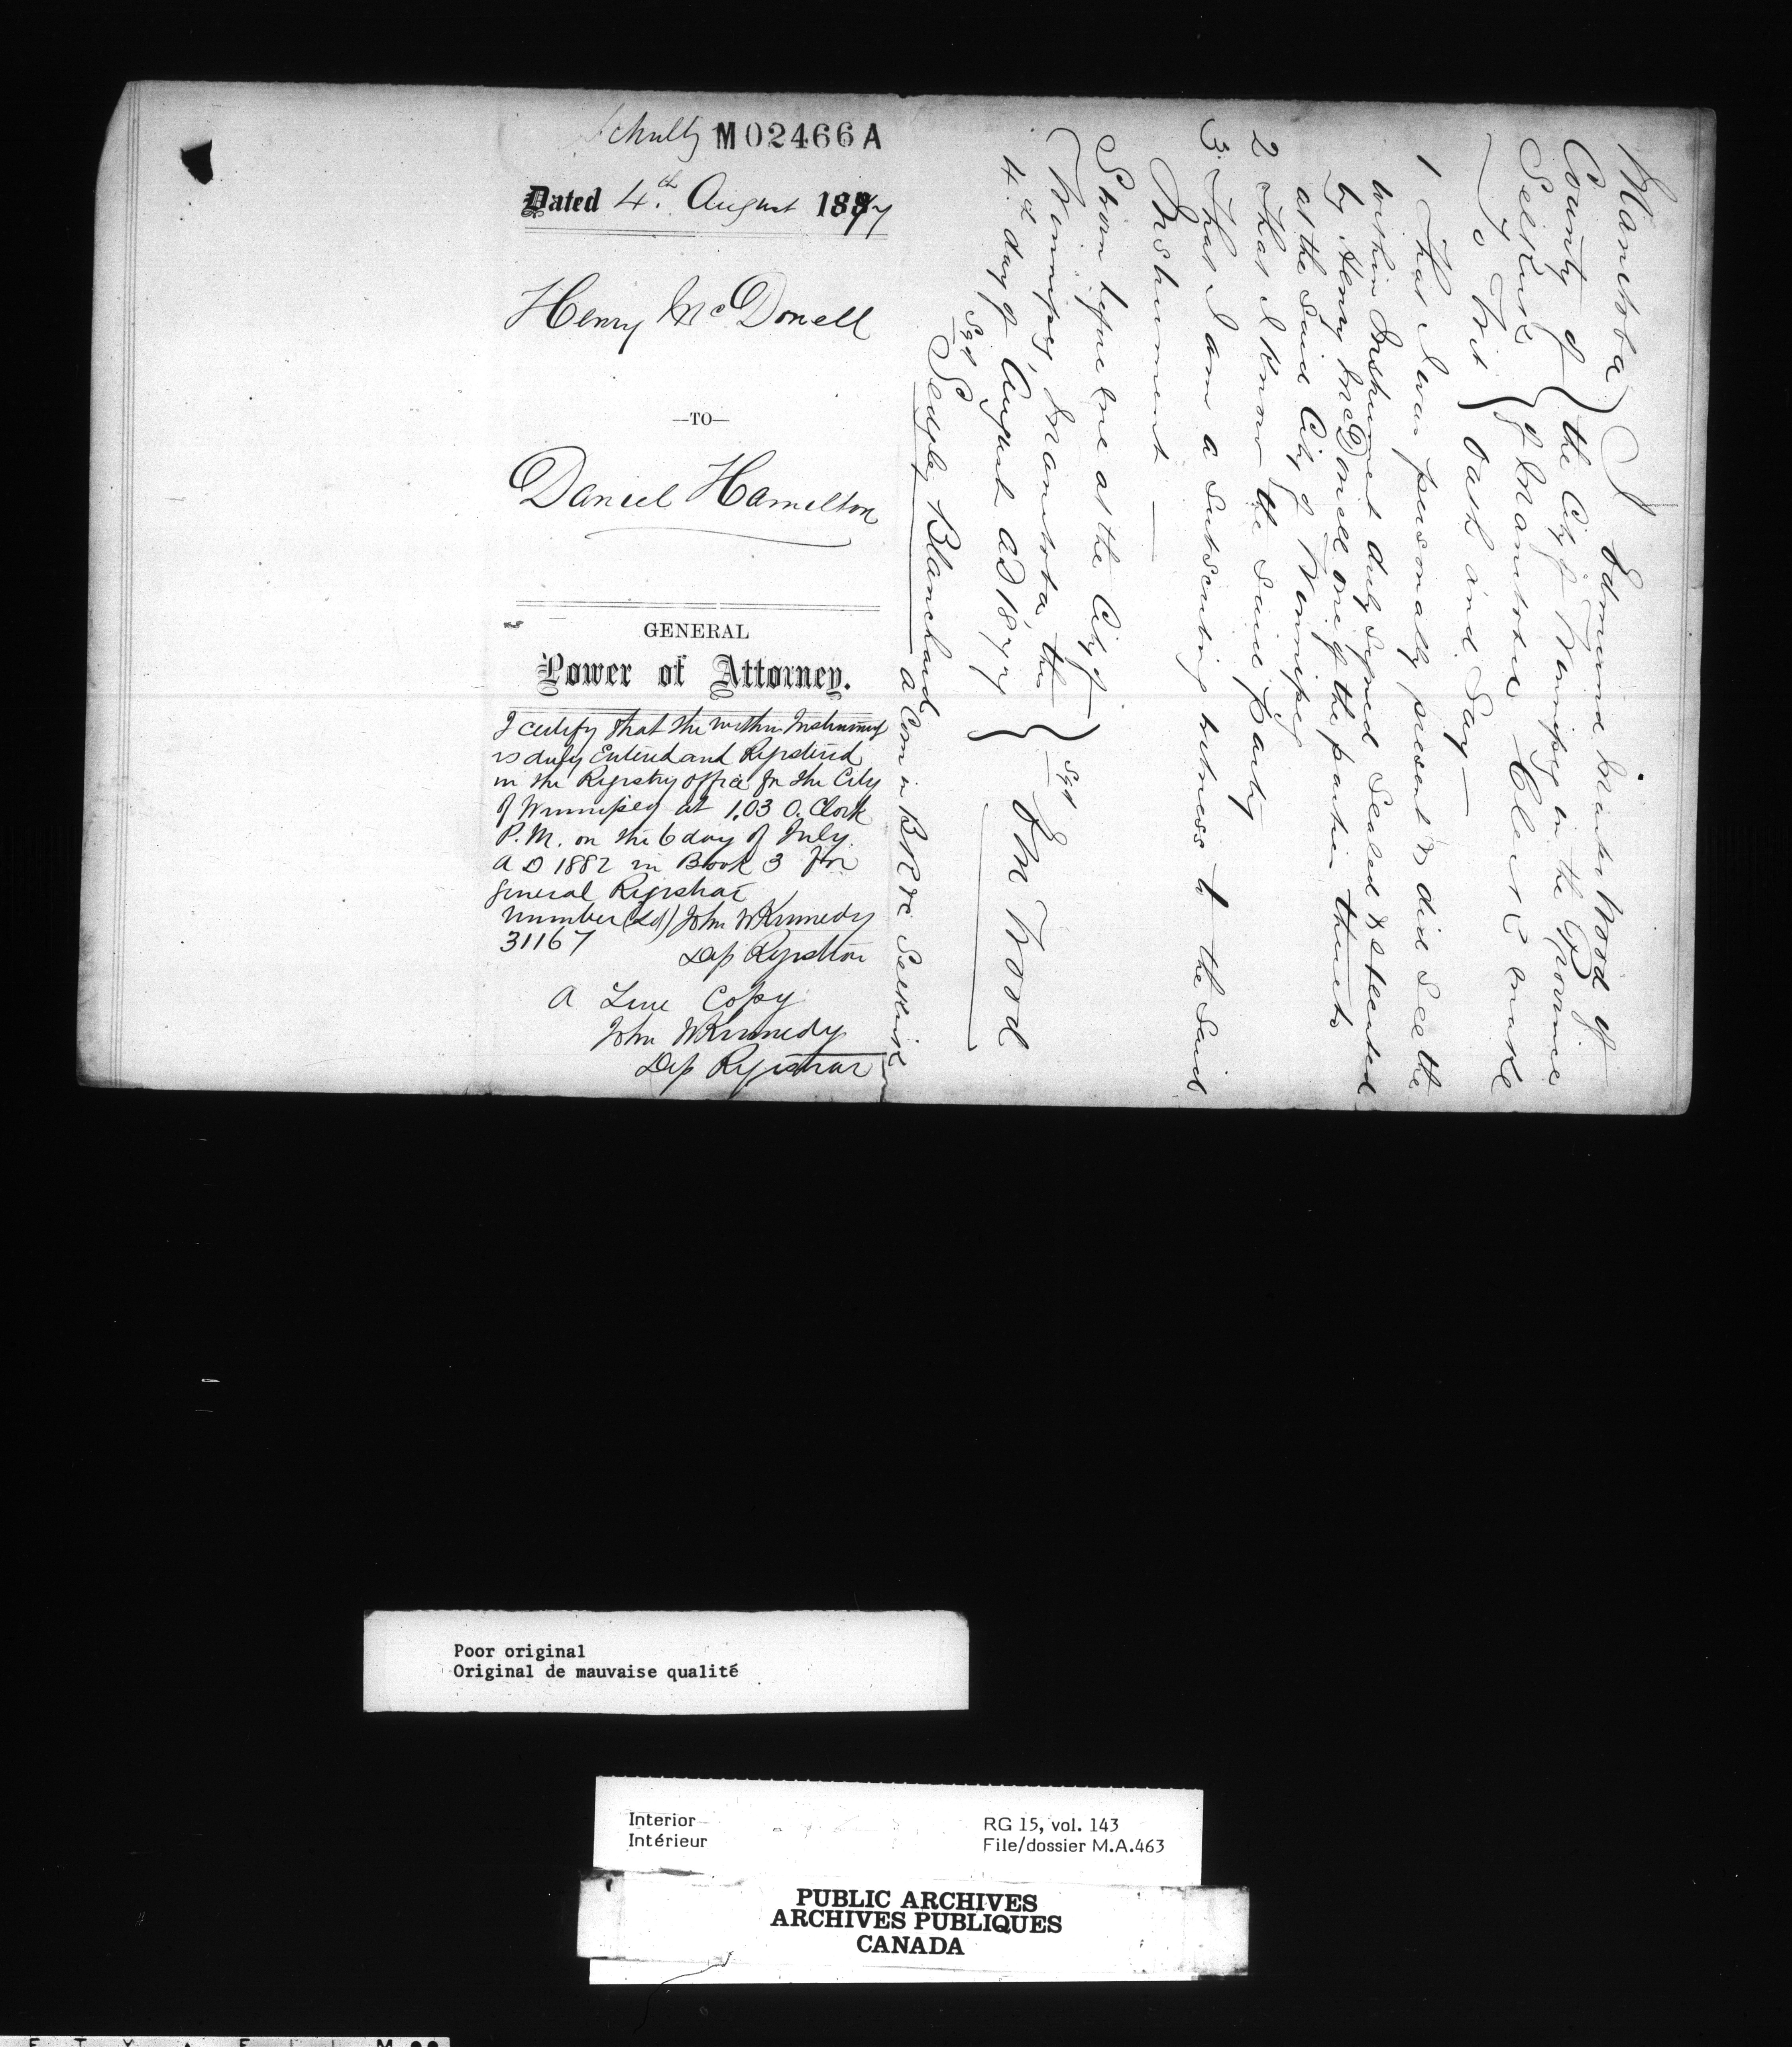 Schultz M02466A
Dated 4th August 1877
Henry McDonell
—TO—
Daniel Hamilton
GENERAL
Power of Attorney.
I certify that the within Instrument
is duly Entered and Registered
in the Registry Office for the City
of Winnipeg at 1.03 O.Clock
P.M. on the 6 day of July
A D 1882 in Book 3 for
General Registrar
number (Sd) John W Kennedy
31167
Dep Registrar
A True Copy
John W Kennedy
Dep Registrar
Manitoba } I Edmund Marter Wood of
County of } the City of Winnipeg in the Province
Selkirk } of Manitoba Clerk make
To Wit } oath and Say—
1 That I was personally present & did see the
within Instrument duly Signed Sealed & Executed
by Henry McDonell one of the parties thereto
at the said City of Winnipeg
2 That I know the said party
3. That I am a subscribing witness to the said
Instrument —
Sworn before me at the City of
Winnipeg, Manitoba, this } Sgd E M Wood
4th day of August AD 1877
Sgd Sedgley Blanchard
A Com in BR &c Selkirk
Poor original
Original de mauvaise qualité
Interior
Intérieur
RG 15, vol. 143
File/dossier M.A.463
PUBLIC ARCHIVES
ARCHIVES PUBLIQUES
CANADA